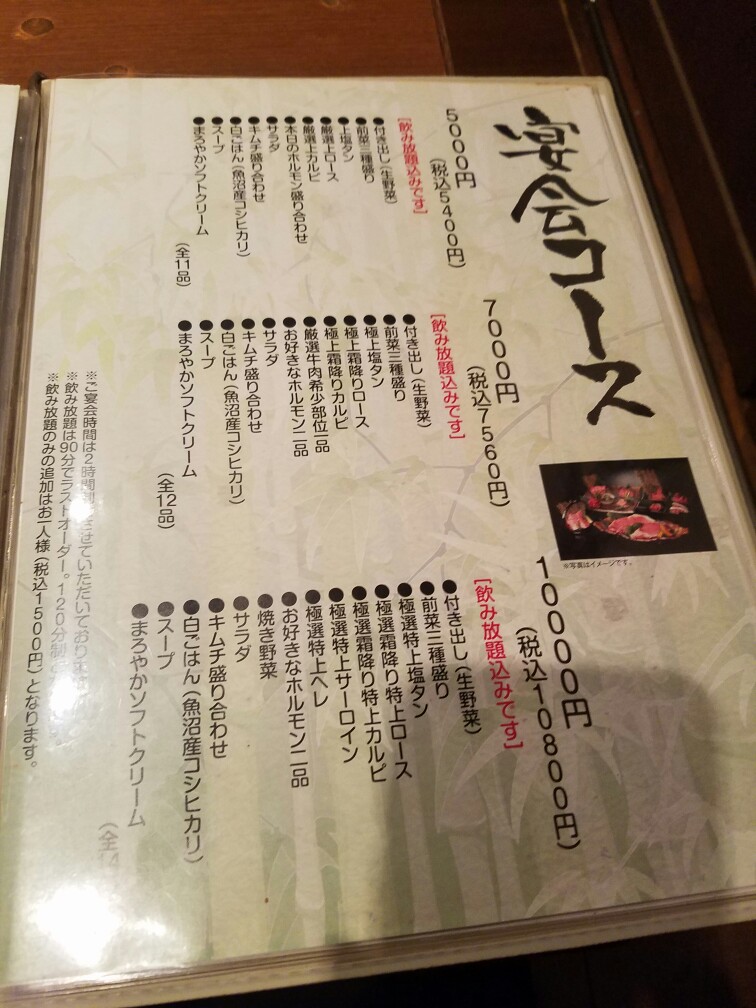 宴会コース
※写真はイメージです。
5000円
(税込5400円)
[飲み放題込みです]
●付き出し(生野菜)
●前菜三種盛り
●上塩タン
●厳選上ロース
●厳選上カルビ
●本日のホルモン盛り合わせ
●サラダ
●キムチ盛り合わせ
●白ごはん(魚沼産コシヒカリ)
●スープ
●まろやかソフトクリーム
(全11品)
7000円
(税込7560円)
[飲み放題込みです]
●付き出し(生野菜)
●前菜三種盛り
●極上塩タン
●極上霜降りロース
●極上霜降りカルビ
●厳選牛肉希少部位一品
●お好きなホルモン二品
●サラダ
●キムチ盛り合わせ
●白ごはん(魚沼産コシヒカリ)
●スープ
●まろやかソフトクリーム
(全12品)
10000円
(税込10800円)
[飲み放題込みです]
●付き出し(生野菜)
●前菜三種盛り
●極選特上塩タン
●極選霜降り特上ロース
●極選霜降り特上カルビ
●極選特上サーロイン
●極選特上ヘレ
●お好きなホルモン二品
●焼き野菜
●サラダ
●キムチ盛り合わせ
●白ごはん(魚沼産コシヒカリ)
●スープ
●まろやかソフトクリーム
(全14
※ご宴会時間は2時間制とさせていただいており
※飲み放題は90分でラストオーダー。120分制
※飲み放題のみの追加はお一人様(税込1500円)となります。